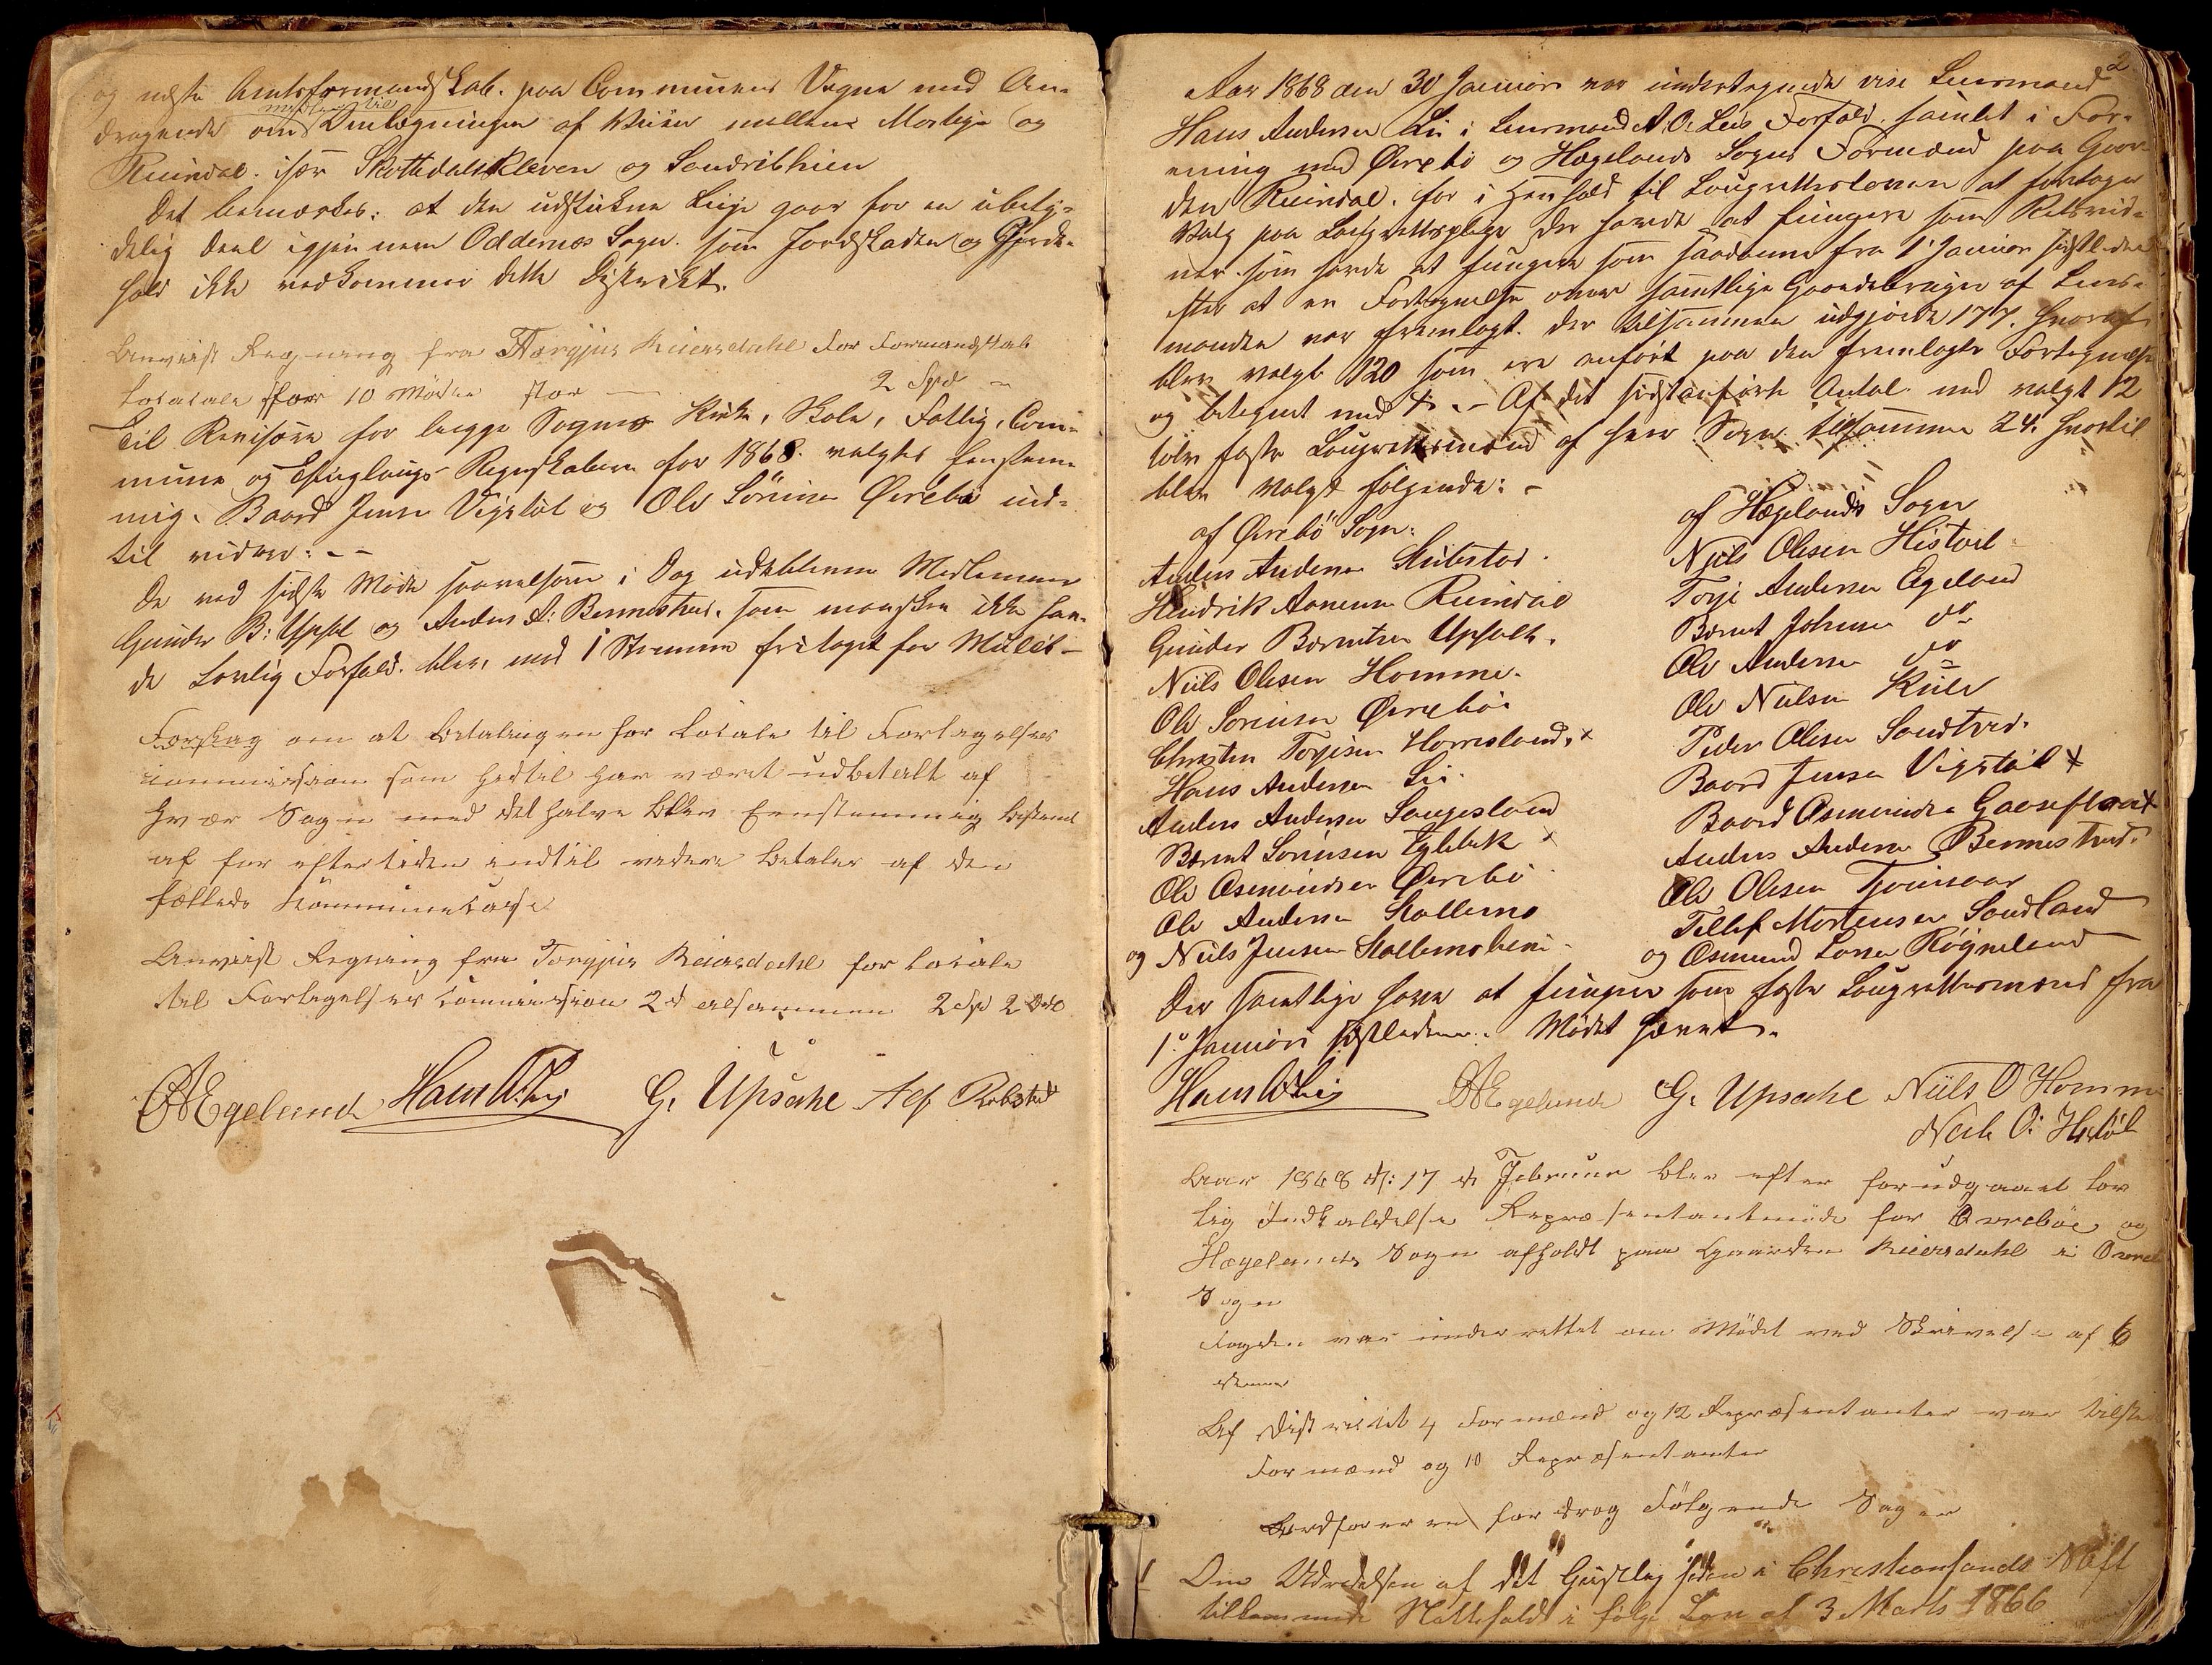 og næste Amtsformandskab. paa Communens Vegne med An-
dragende om midler til Omlægningen af Veien mellem Mosbye og
Reiersdal. især Skottedalskleven og Sandribheien
Det bemærkes: at den udstukne Linje gaar for en ubety-
delig Deel igjennem Oddernes Sogn. som Jordskaden og Gjerde-
hold ikke vedkommer dette Distrikt.
Anvist Regning fra Tørgjus Reiersdahl for Formandskabs
Locale for 10 Møder stor — 2 Spd —
Til Revisorer for begge Sognes Kirke, Skole, Fattig, Com-
mune og Thinglaugs Regnskaberne for 1868. valgtes eenstem-
mig. Baard Jensen Vigstøl og Ole Sørensen Øvrebø ind-
til videre: --
De ved sidste Møde saavelsom i Dag udeblevne Medlemmer
Gunder B: Upsal og Anders A: Bernestved. som manskee ikke hav-
de Lovlig Forfald. blev, med 1 Stemme fritaget for Mulct -
Forslag om at Betalingen for Locale til Forligelses
commission som hidtil har været udbetalt af
hvær Sogn med det halve blev Eenstemmig bestemt
at for eftertiden indtil videre betales af den
fælleds Kommunekasse
Anvist Regning fra Torgjus Reiersdahl for Locale
til Forligelses Commission 2d alsammen 2 Spd 2 Ort
OAEgeland Hans A. Lie G. Upsahl A ef Rebstad
2
Aar 1868 den 30 Januar var undertegnede vise Lensmand
Hans Andersen Lie i Lensmand A. O. Lies Forfald. samlet i For-
ening med Øvrebø og Hægelands Sogns Formænd paa Gaar
den Reiersdal. for i Henhold til Lougrettesloven at foretage
Valg paa Laugrettspligtige der havde at fungere som Retsvid-
ner. som havde at fungere som saadanne fra 1' Januar sidstleden
efter at en Fortegnelse over samtlige Gaardebruger af Lens-
manden var fremlagt. der tilsammen udgjorde 177. hvoraf
blev valgt 120 som ere anført paa den fremlagte Fortegnelse
og betegnet med +. - Af det sidstanførte Antal. med valgt 12
tolv faste Lougrettesmænd af hver Sogn tilsammen 24. hvortil
blev valgt følgende: -
af Øvrebø Sogn:
Anders Andersen Stubstad.
Hendrik Aanensen Reiersdal
Gunder Berntsen Upsahl.
Niels Olesen Homme.
Ole Sørensen Øvrebø.
Christen Torjesen Horrisland. x
Hans Andersen Lie.
Anders Andersen Langeland
Bernt Sørensen Eglebæk x
Ole Osmundsen Øvrebø
Ole Andersen Stallemo
og Niels Jensen Stallemoheie -
af Hægelands Sogn
Niels Olesen Histøl
Torje Andersen Egeland
Bernt Johnsen do
Ole Andersen do
Ole Nielsen Kile
Peder Olesen Sandtved.
Baard Jensen Vigstøl x
Baard Osmundsen Gaaseflaa x
Anders Andersen Bernestved.
Ole Olesen Tjomsaas
Tellef Mortensen Sandland
og Osmund Larsen Røigneland
Der samtlige have at fungere som faste Lougrettesmænd fra
1' Januar sidstleden. Mødet hævet.
Hans A Lie OAEgeland G. Upsahl Niils O Homme
Neils O: Histøl
Aar 1868 d: 17 de Februar blev efter forudgaaet lov
lig Indkaldelse Repræsentantmøde for Øvrebøe og
Hægelands Sogn afholdt paa Gaarden Reiersdahl i Øvrebø
Sogn
Fogden var underrettet om Mødet ved Skrivelse af 6
dennes
Af Distriktet 4 Formænd og 12 Repræsentanter var tilstede
Formænd og 10 Repræsentanter
Ordføreren for drog Følgende Sager
1 Om Udredelsen af det Geistligheden i Christiansands Stift
tilkommende Nattehold i følge Lov af 3 Marts 1866